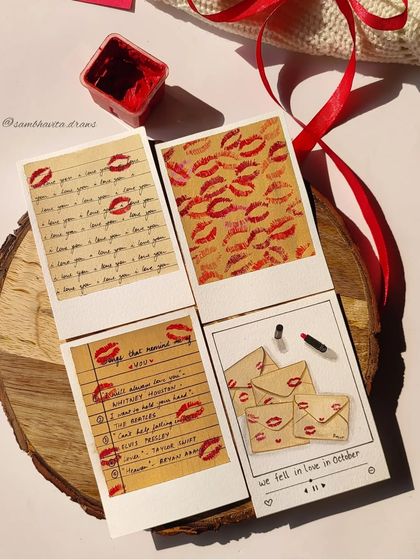 @sambhavita.draws
love you • i love you
i love you • i love you • i love you
i love you • i love you • i love you
i love you • i love you • i love you
i love you • i love you • i love you
i love you • i love you • i love you
i love you • i love you • i love you
i love you • i love you • i love you
i love you • i love you • i love you
that remind me
YOU
will always love you" -
WHITNEY HOUSTON
② "I want to hold your hand" -
THE BEATLES
③ "Can't help falling
ELVIS PRESLEY
"Lover" - TAYLOR SWIFT
⑤ "Heaven" - BRYAN ADAMS
we fell in love in October